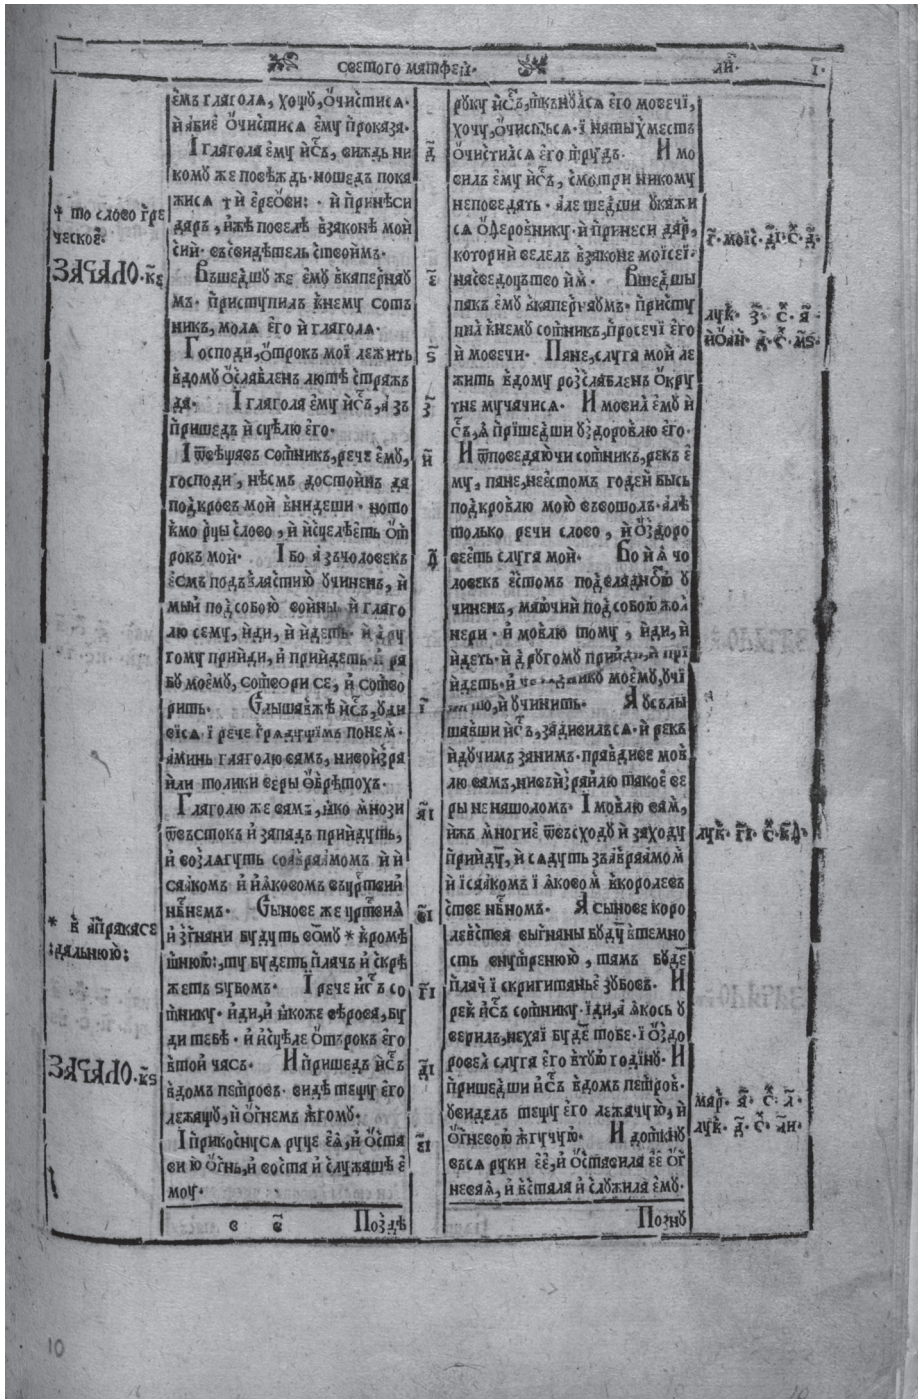 светого матфеꙗ. ли҃. і҃.
емъ глаголѧ, хощꙋ, ѡчистисѧ.
и абие ѡчистисѧ ему проказа.
І глагола ему иіс҃ъ, виждь ни
кому же повѣждь. но шедъ пока
жисѧ † и ереѡви: и принѣси
даръ, иже повелѣ в законѣ мой
сий. въ свидѣтельствоимъ.
Въшедшу же ему в капернау
мъ. приступилъ к нему сотъ
никъ, молѧ его и глаголѧ.
Господи, ѡтрокъ мої лежить
в дому ѡслабленъ лютѣ стражъ
да. І глагола ему иіс҃ъ, азъ
пришедъ исцѣлю его.
І ѿвѣщавъ сотникъ, рече ему,
господи, нѣсмъ достоинъ да
под кровъ мой внидеши. но то
кмо рцы слово, и исцелѣеть ѡт
рокъ мой. Ібо азъ человекъ
есмъ подъ властию учиненъ, и
мый под собою войны. и глаго
лю сему, йди, и йдеть. и дру
гому прийди, и прийдеть. и ра
бу моему, сотвори се, и сотво
рить. Слышавже иіс҃ъ, уди
висѧ. і рече грѧдущімъ по нем.
аминь глаголю вамъ, ни во ізра
или толики веры ѡбрѣтохъ.
Глаголю же вамъ, ꙗко мнози
ѿ въстокъ и западъ прийдуть,
и возлѧгуть со авраамомъ и и
саакомъ и иꙗковомъ въ цр҃твий
нб҃немъ. Сынове же цр҃твиѧ
изгнани будуть во тму * кромѣ
шнюю: ту будеть плачъ и скрѣ
жетъ зубомъ. Ірече иіс҃ъ со
тнику. иди, и ꙗкоже вѣрова, бу
ди тебѣ. и исцѣле ѡтърокъ его
в той часъ. И пришедъ иіс҃ъ
в домъ петровъ. видѣ тещу его
лежащу, и ѡгнемъ жгому.
І прикоснусѧ руце еѧ, и ѡста
ви ю ѡгнь, и воста и служаше е
моу.
в в҃ Позѣдѣ
† то слово гре
ческое.
ЗАЧАЛО. к҃е
* в апракасе
дальнюю:
ЗАЧАЛО. к҃ѕ
д҃
е҃
ѕ҃
з҃
и҃
ѳ҃
і҃
а҃і
в҃і
г҃і
д҃і
е҃і
руку иіс҃ъ, ткънулсѧ его мовечі,
хочу, ѡчистьсѧ. і натыхместъ
ѡчистилсѧ его трудъ. И мо
вилъ ему иіс҃ъ, смотри никому
не поведать. але шедши укажи
сѧ ѡферовнику. и принеси дар,
которий велелъ в законе моісей.
на сведоцътво им. Вшедшы
пакъ ему в капернаумъ. присту
пил к нему сотник, просечі его
и мовечи. Пане, слуга мой ле
жить в дому розслабленъ ѡкру
тне мучачисѧ. И мовил ему и
іс҃ъ, ꙗ прішедши уздоровлю его.
И ѿповедаючи сотникъ, рекъ е
му, пане, не естомъ годен бысь
под кровлю мою въвошолъ. але
только речи слово, и ѡздоро
веетъ слуга мой. Бо и ꙗ чо
ловекъ естомъ под владною у
чиненъ, маючий под собою жол
нери. и мовлю тому, йди, и
йдеть. и другому прийди, и при
йдеть. и моему, учі
то, и учинить. А услы
шавши иіс҃ъ, задивилъсѧ. и рекъ
йдучимъ за нимъ. правдиве мов
лю вамъ, ни въ израйлю такое ве
ры не нашоломъ. І мовлю вам,
ижъ многие ѿ въсходу и заходу
прийдут, и сѧдуть зъ авраамом
и ісаакомъ і ꙗковом в королевъ
стве нб҃номъ. А сынове коро
левства выгнаны будут в темно
сть внутренюю, тамъ буде
плач і скригитанье зубовъ. И
рек иіс҃ъ сотнику. іди, а ꙗкось у
верилъ, нехай буде тобе. і ѡздо
ровел слуга его в тую годину. И
пришедши иіс҃ъ в домъ петров.
увидель тещу его лежачую, и
ѡгневою жгучую. И доткну
въсѧ руки ее, и ѡставила ее ѡг
неваѧ, и встала и служила ему.
Позну
г҃. моіс. д҃і. с. д҃.
лук. з҃. с. а҃.
иѡан. д҃. с. м҃ѕ.
лук. г҃і. с. к҃д.
мар. а҃. с. л҃.
лук. д҃. с. л҃и.
10